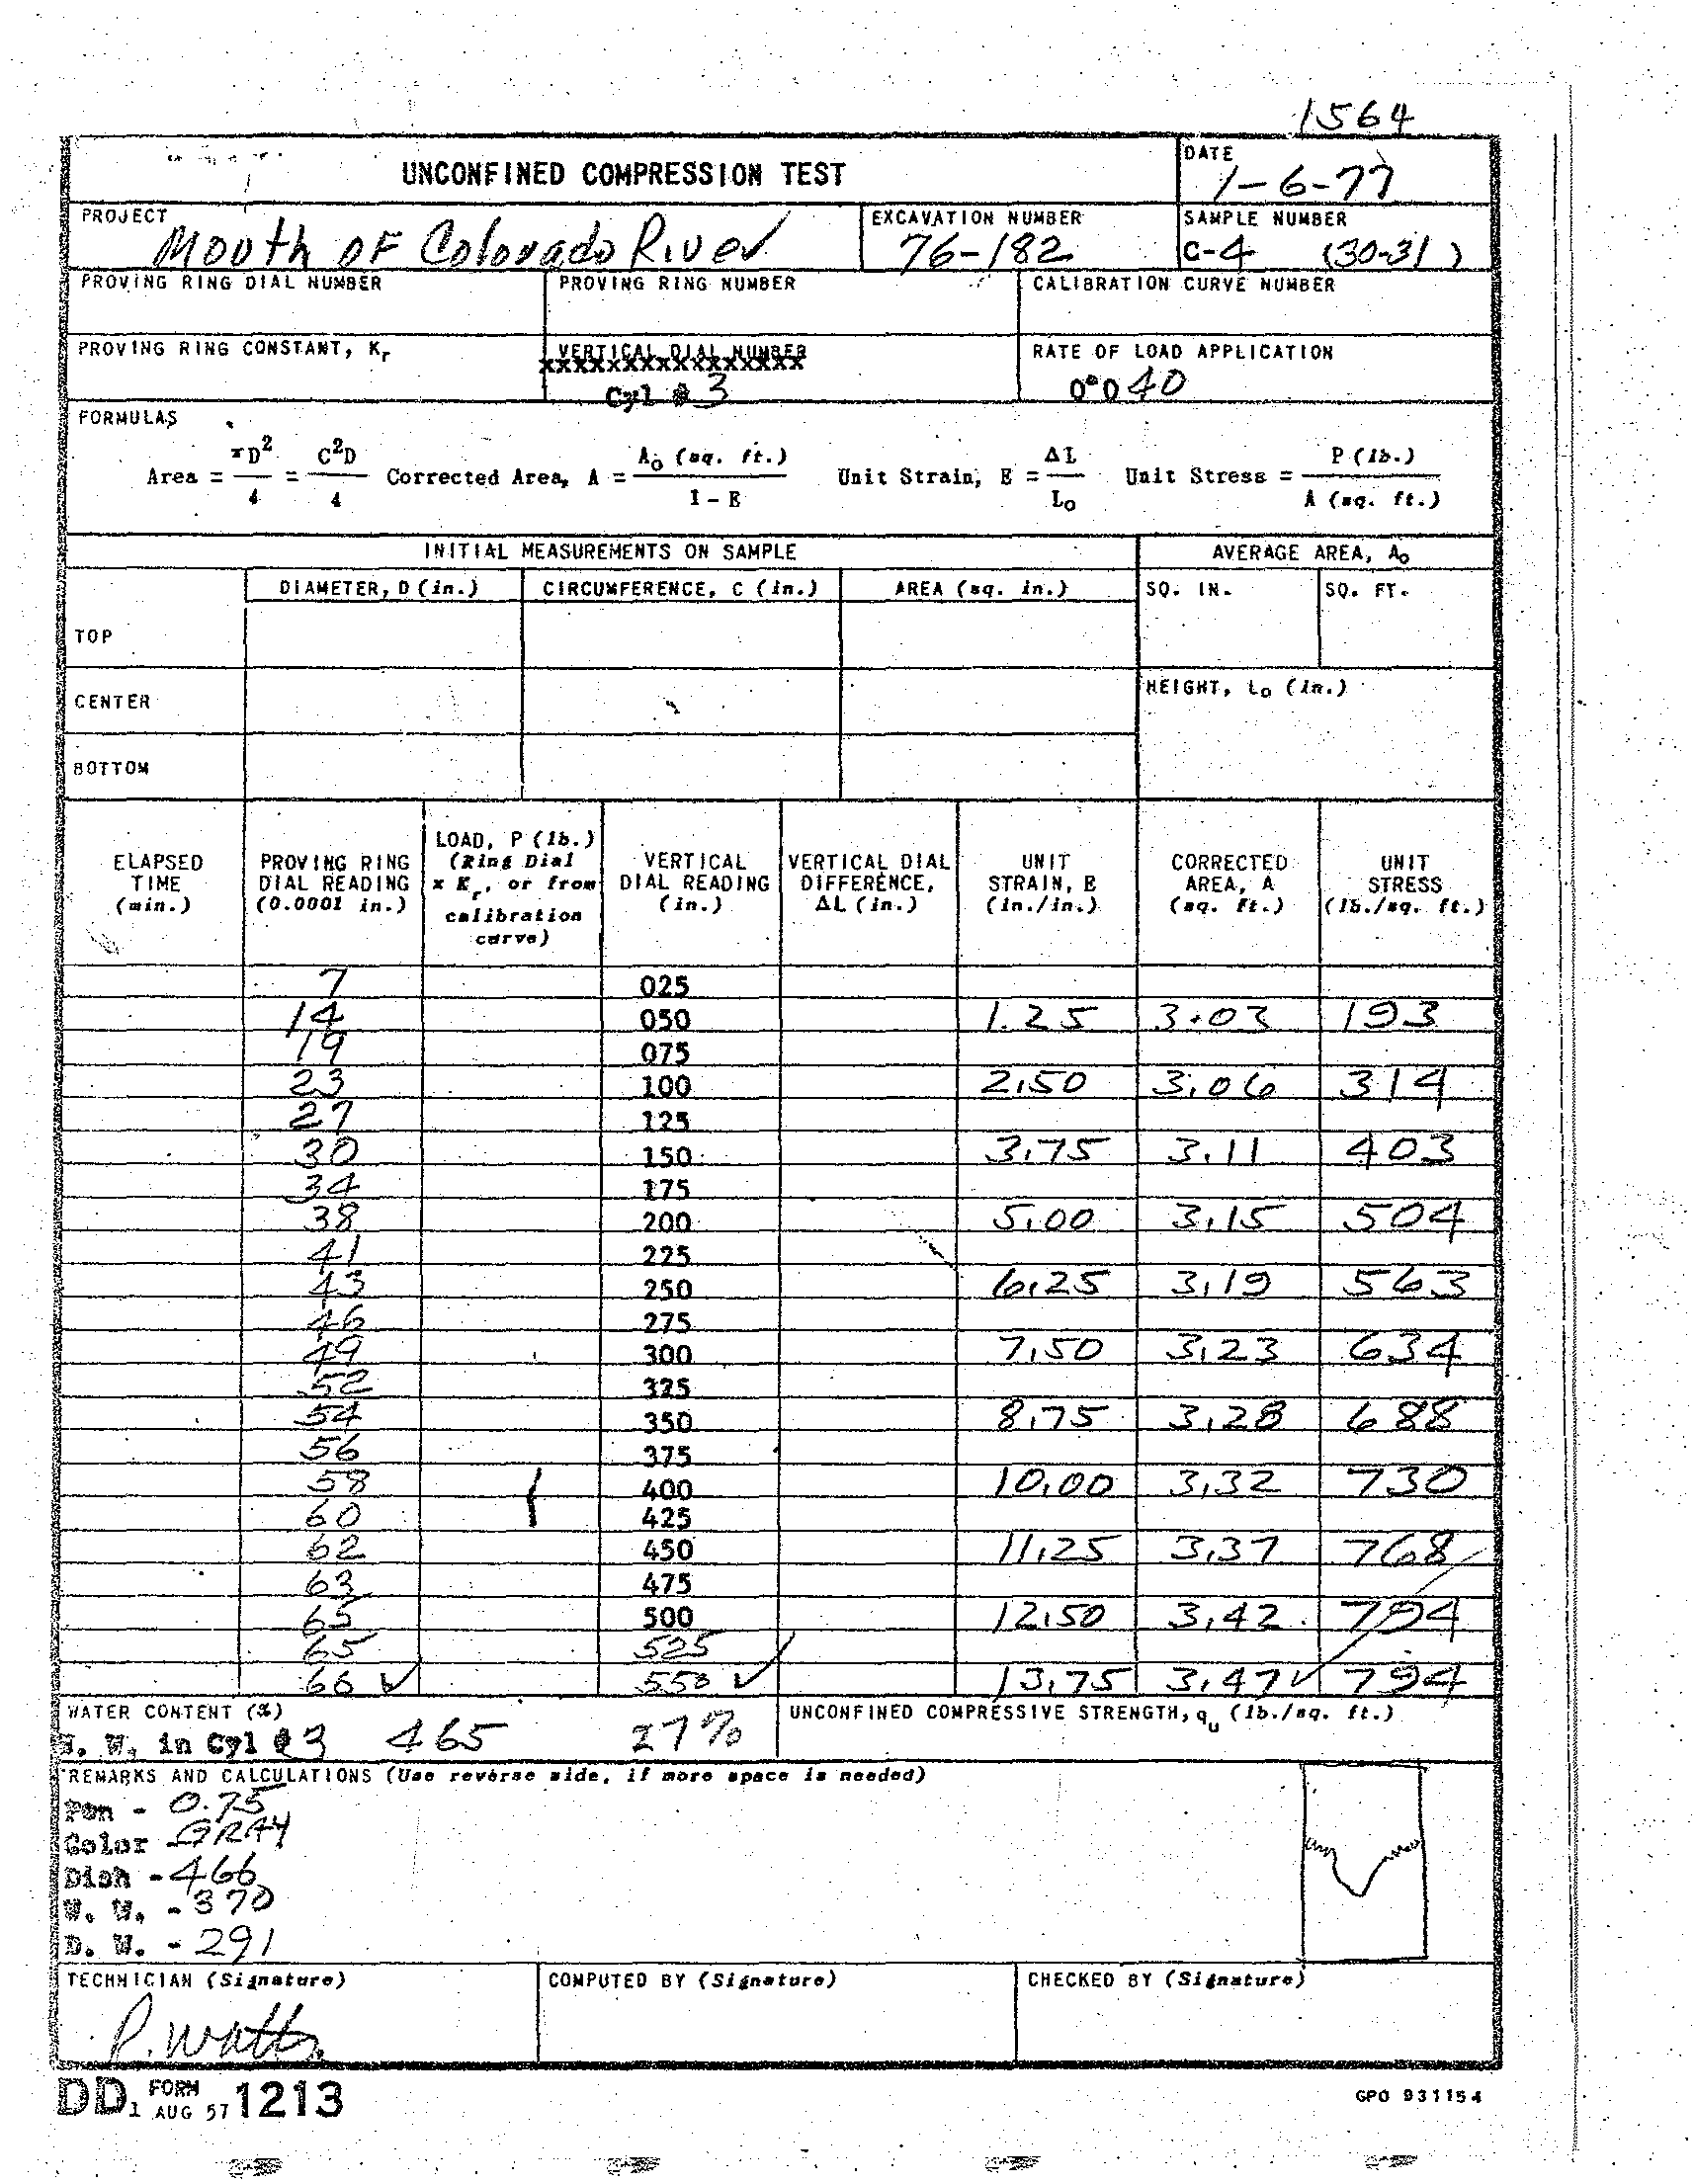 1564
UNCONFINED COMPRESSION TEST
DATE
1-6-77
PROJECT
Mouth OF Colorado River
EXCAVATION NUMBER
76-182
SAMPLE NUMBER
C-4 (30-31)
PROVING RING DIAL NUMBER
PROVING RING NUMBER
CALIBRATION CURVE NUMBER
PROVING RING CONSTANT, Kr
VERTICAL DIAL NUMBER
XXXXXXXXXXXXXXXX
Cyl # 3
RATE OF LOAD APPLICATION
0.040
FORMULAS
Area = πD²/4 = C²D/4 Corrected Area, A = A₀ (sq. ft.)/1 - E Unit Strain, E = ΔL/L₀ Unit Stress = P (lb.)/A (sq. ft.)
INITIAL MEASUREMENTS ON SAMPLE
AVERAGE AREA, A₀
DIAMETER, D (in.) CIRCUMFERENCE, C (in.) AREA (sq. in.) SQ. IN. SQ. FT.
TOP
CENTER
HEIGHT, L₀ (in.)
BOTTOM
ELAPSED TIME (min.)
PROVING RING DIAL READING (0.0001 in.)
LOAD, P (lb.) (Ring Dial x Kr, or from calibration curve)
VERTICAL DIAL READING (in.)
VERTICAL DIAL DIFFERENCE, ΔL (in.)
UNIT STRAIN, E (in./in.)
CORRECTED AREA, A (sq. ft.)
UNIT STRESS (lb./sq. ft.)
7 025
14 050 1.25 3.03 193
19 075
23 100 2.50 3.06 314
27 125
30 150 3.75 3.11 403
34 175
38 200 5.00 3.15 504
41 225
43 250 6.25 3.19 563
46 275
49 300 7.50 3.23 634
52 325
54 350 8.75 3.28 688
56 375
58 400 10.00 3.32 730
60 425
62 450 11.25 3.37 768
63 475
65 500 12.50 3.42 794
65 525
66 ✓ 550 ✓ 13.75 3.47 ✓ 794
WATER CONTENT (%)
W. W. in Cyl # 3 465 27%
UNCONFINED COMPRESSIVE STRENGTH, qu (lb./sq. ft.)
REMARKS AND CALCULATIONS (Use reverse side, if more space is needed)
Pen - 0.75
Color GRAY
Dish - 466
W. W. - 370
D. W. - 291
TECHNICIAN (Signature)
P. Watts
COMPUTED BY (Signature)
CHECKED BY (Signature)
DD FORM 1 AUG 57 1213
GPO 931154